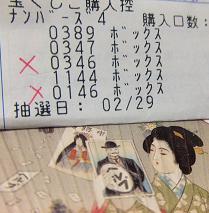 宝くじご購入控
ナンバーズ4 購入口数:
0389 ボックス
0347 ボックス
0346 ボックス
1144 ボックス
0146 ボックス
抽選日: 02/29